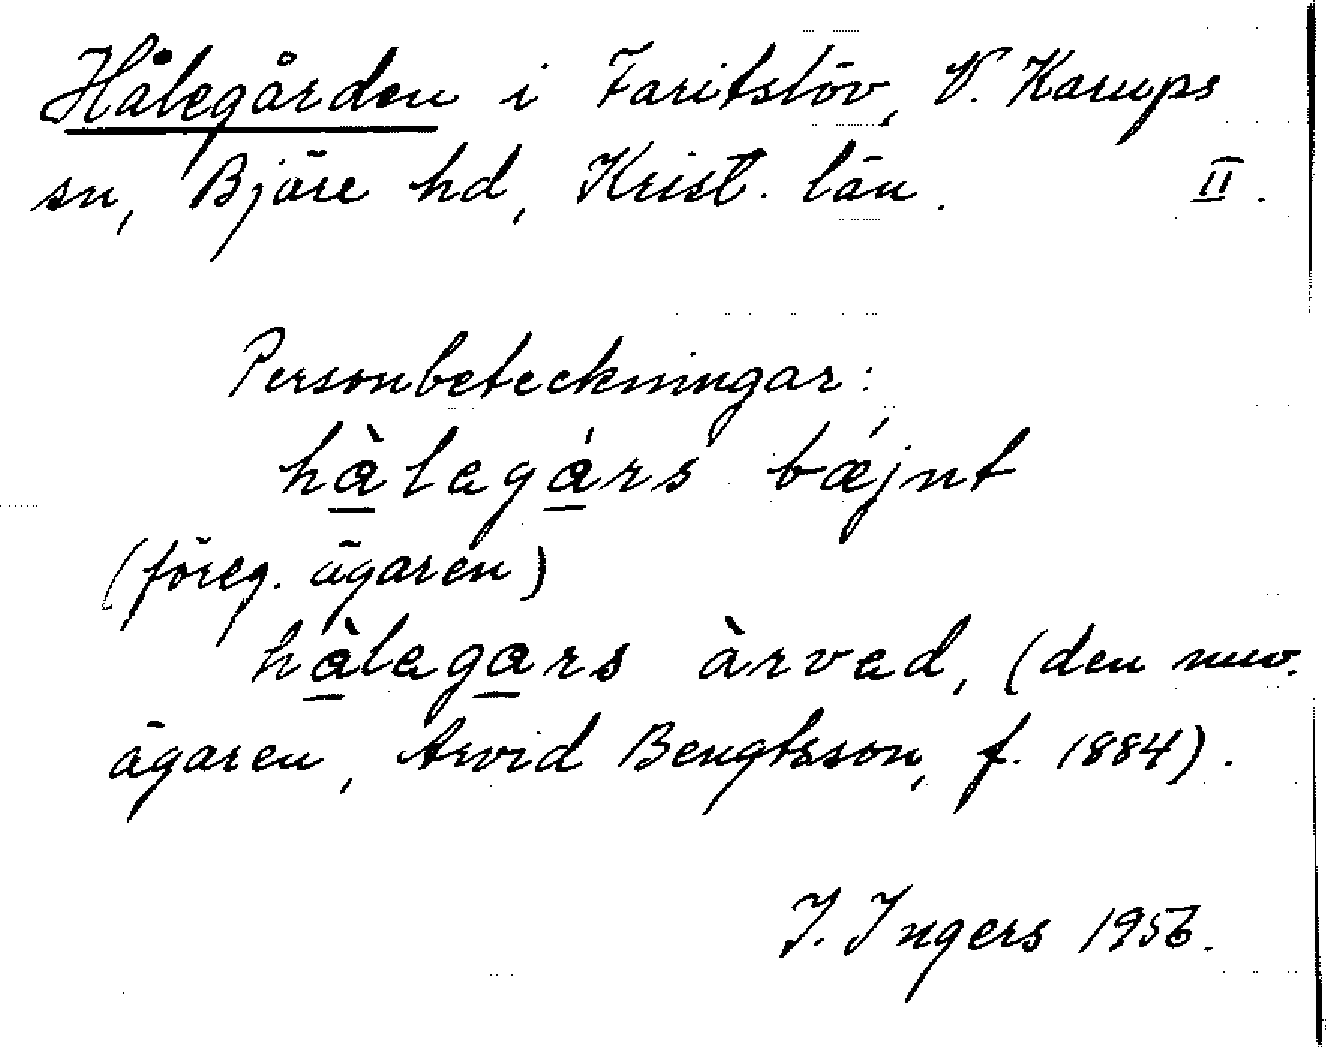 Hålegården i Faritslöv, V. Karups
sn, Bjäre hd, Krist. län. II.
Personbeteckningar:
hàlegárs bǽjnt
(föreg. ägaren)
hàlegars àrved, (den nuv.
ägaren, Arvid Bengtsson, f. 1884).
I. Ingers 1956.